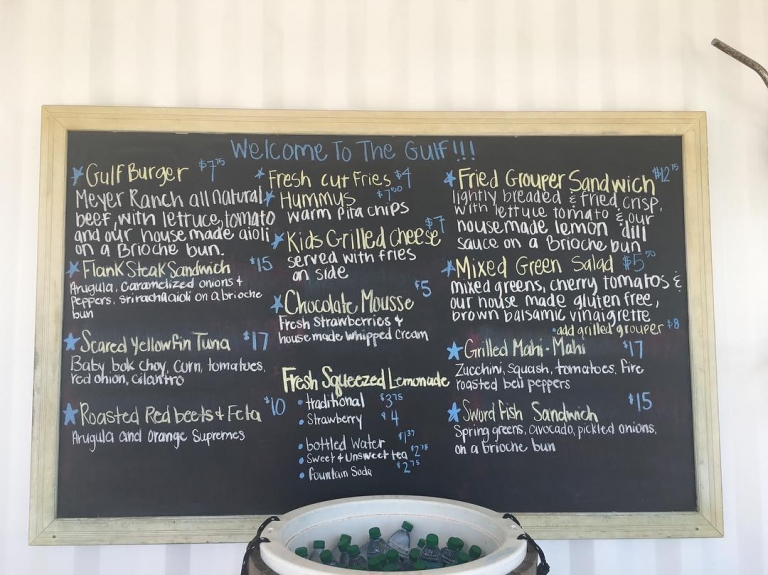 Welcome To The Gulf!!!
Gulf Burger $7.75
Meyer Ranch all natural
beef, with lettuce, tomato
and our house made aioli
on a Brioche bun.
Flank Steak Sandwich $15
Arugula, Caramelized onions &
Peppers, sriracha aioli on a brioche
bun
Seared Yellowfin Tuna $17
Baby bok choy, corn, tomatoes,
red onion, cilantro
Roasted Red beets & Feta $10
Arugula and Orange Supremes
Fresh cut Fries $4
Hummus $7.50
warm pita chips
Kids Grilled Cheese $7
served with fries
on side
Chocolate Mousse $5
Fresh Strawberries &
house made whipped cream
Fresh Squeezed Lemonade
• traditional $3.75
• Strawberry $4
• bottled Water $1.37
• Sweet & Unsweet tea $2.75
• fountain Soda $2.75
Fried Grouper Sandwich $12.75
lightly breaded & fried crisp,
with lettuce tomato & our
house made lemon dill
sauce on a Brioche bun
Mixed Green Salad $5.50
mixed greens, cherry tomatoes &
our house made gluten free,
brown balsamic vinaigrette
• add grilled grouper $8
Grilled Mahi-Mahi $17
Zucchini, squash, tomatoes, fire
roasted bell peppers
Sword fish Sandwich $15
Spring greens, avocado, pickled onions,
on a brioche bun